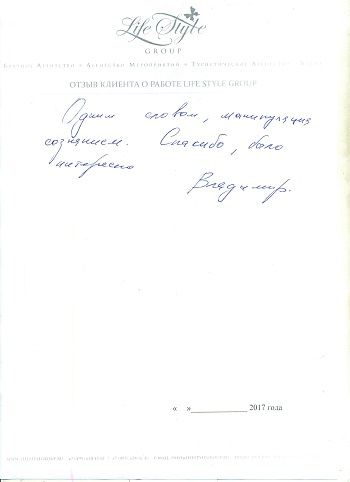 Life Style
GROUP
Брачное Агентство • Агентство Мероприятий • Туристическое Агентство
ОТЗЫВ КЛИЕНТА О РАБОТЕ LIFE STYLE GROUP
Одним словом, манипуляция
сознанием. Спасибо, было
интересно
Владимир.
« »______________ 2017 года